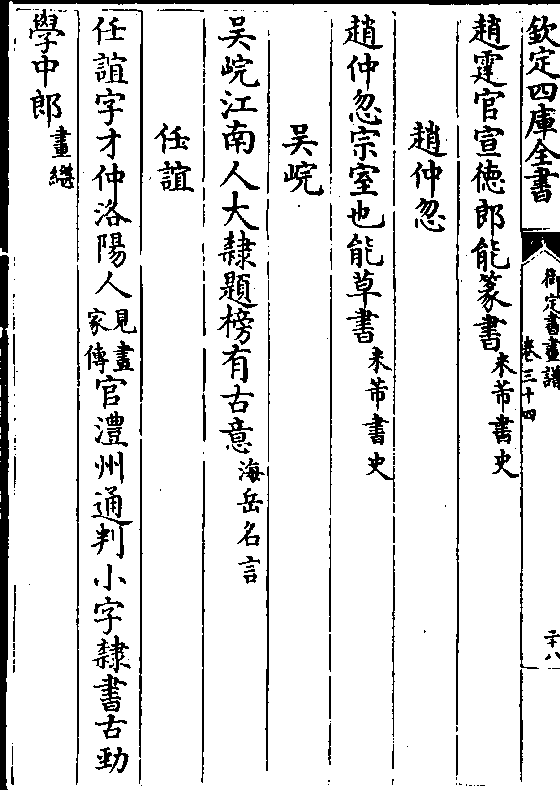 欽定四庫全書
御定書畫譜
卷三十四
二十八
趙霆官宣徳郎能篆書米芾書史
趙仲忽
趙仲忽宗室也能草書米芾書史
吴皖
吴皖江南人大隸題榜有古意海岳名言
任誼
任誼字才仲洛陽人見畫家傳官澧州通判小字隸書古勁
學中郎畫繼